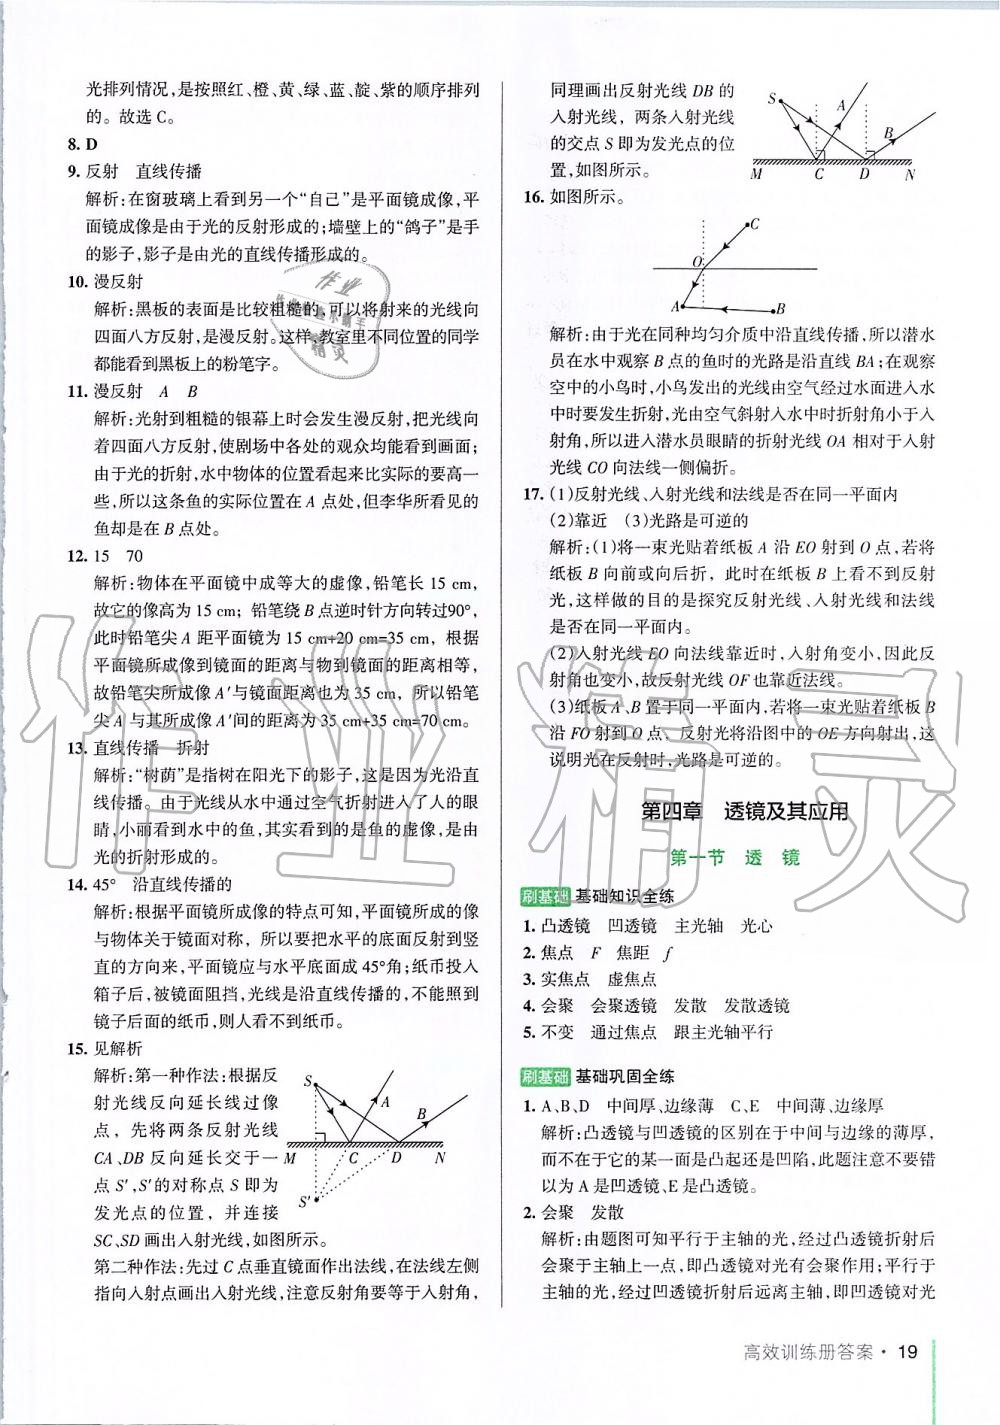 光排列情况,是按照红、橙、黄、绿、蓝、靛、紫的顺序排列
的。故选 C。
8. D
9. 反射　直线传播
解析:在窗玻璃上看到另一个“自己”是平面镜成像,平
面镜成像是由于光的反射形成的;墙壁上的“鸽子”是手
的影子,影子是由光的直线传播形成的。
10. 漫反射
解析:黑板的表面是比较粗糙的,可以将射来的光线向
四面八方反射,是漫反射。这样,教室里不同位置的同学
都能看到黑板上的粉笔字。
11. 漫反射　A　B
解析:光射到粗糙的银幕上时会发生漫反射,把光线向
着四面八方反射,使剧场中各处的观众均能看到画面;
由于光的折射,水中物体的位置看起来比实际的要高一
些,所以这条鱼的实际位置在 A 点处,但李华所看见的
鱼却是在 B 点处。
12. 15　70
解析:物体在平面镜中成等大的虚像,铅笔长 15 cm,
故它的像高为 15 cm;铅笔绕 B 点逆时针方向转过90°,
此时铅笔尖 A 距平面镜为 15 cm+20 cm=35 cm,根据
平面镜所成像到镜面的距离与物到镜面的距离相等,
故铅笔尖所成像 A′与镜面距离也为 35 cm,所以铅笔
尖 A 与其所成像 A′间的距离为 35 cm+35 cm=70 cm。
13. 直线传播　折射
解析:“树荫”是指树在阳光下的影子,这是因为光沿直
线传播。由于光线从水中通过空气折射进入了人的眼
睛,小丽看到水中的鱼,其实看到的是鱼的虚像,是由
光的折射形成的。
14. 45°　沿直线传播的
解析:根据平面镜所成像的特点可知,平面镜所成的像
与物体关于镜面对称,所以要把水平的底面反射到竖
直的方向来,平面镜应与水平底面成 45°角;纸币投入
箱子后,被镜面阻挡,光线是沿直线传播的,不能照到
镜子后面的纸币,则人看不到纸币。
15. 见解析
解析:第一种作法:根据反
射光线反向延长线过像
点,先将两条反射光线
CA、DB 反向延长交于一
点 S′,S′的对称点 S 即为
发光点的位置,并连接
SC、SD 画出入射光线,如图所示。
S
A
B
M
C
D
N
S′
第二种作法:先过 C 点垂直镜面作出法线,在法线左侧
指向入射点画出入射光线,注意反射角要等于入射角,
同理画出反射光线 DB 的
入射光线,两条入射光线
的交点 S 即为发光点的位
置,如图所示。
S
A
B
M
C
D
N
16. 如图所示。
C
O
A
B
解析:由于光在同种均匀介质中沿直线传播,所以潜水
员在水中观察 B 点的鱼时的光路是沿直线 BA;在观察
空中的小鸟时,小鸟发出的光线由空气经过水面进入水
中时要发生折射,光由空气斜射入水中时折射角小于入
射角,所以进入潜水员眼睛的折射光线 OA 相对于入射
光线 CO 向法线一侧偏折。
17. (1)反射光线、入射光线和法线是否在同一平面内
(2)靠近　(3)光路是可逆的
解析:(1)将一束光贴着纸板 A 沿 EO 射到 O 点,若将
纸板 B 向前或向后折,此时在纸板 B 上看不到反射
光,这样做的目的是探究反射光线、入射光线和法线
是否在同一平面内。
(2)入射光线 EO 向法线靠近时,入射角变小,因此反
射角也变小,故反射光线 OF 也靠近法线。
(3)纸板 A、B 置于同一平面内,若将一束光贴着纸板 B
沿 FO 射到 O 点,反射光将沿图中的 OE 方向射出,这
说明光在反射时,光路是可逆的。
第四章　透镜及其应用
第一节　透　镜
刷基础 基础知识全练
1. 凸透镜　凹透镜　主光轴　光心
2. 焦点　F　焦距　f
3. 实焦点　虚焦点
4. 会聚　会聚透镜　发散　发散透镜
5. 不变　通过焦点　跟主光轴平行
刷基础 基础巩固全练
1. A、B、D　中间厚、边缘薄　C、E　中间薄、边缘厚
解析:凸透镜与凹透镜的区别在于中间与边缘的薄厚,
而不在于它的某一面是凸起还是凹陷,此题注意不要错
以为 A 是凹透镜、E 是凸透镜。
2. 会聚　发散
解析:由题图可知平行于主轴的光,经过凸透镜折射后
会聚于主轴上一点,即凸透镜对光有会聚作用;平行于
主轴的光,经过凹透镜折射后远离主轴,即凹透镜对光
高效训练册答案 · 19
作业精灵